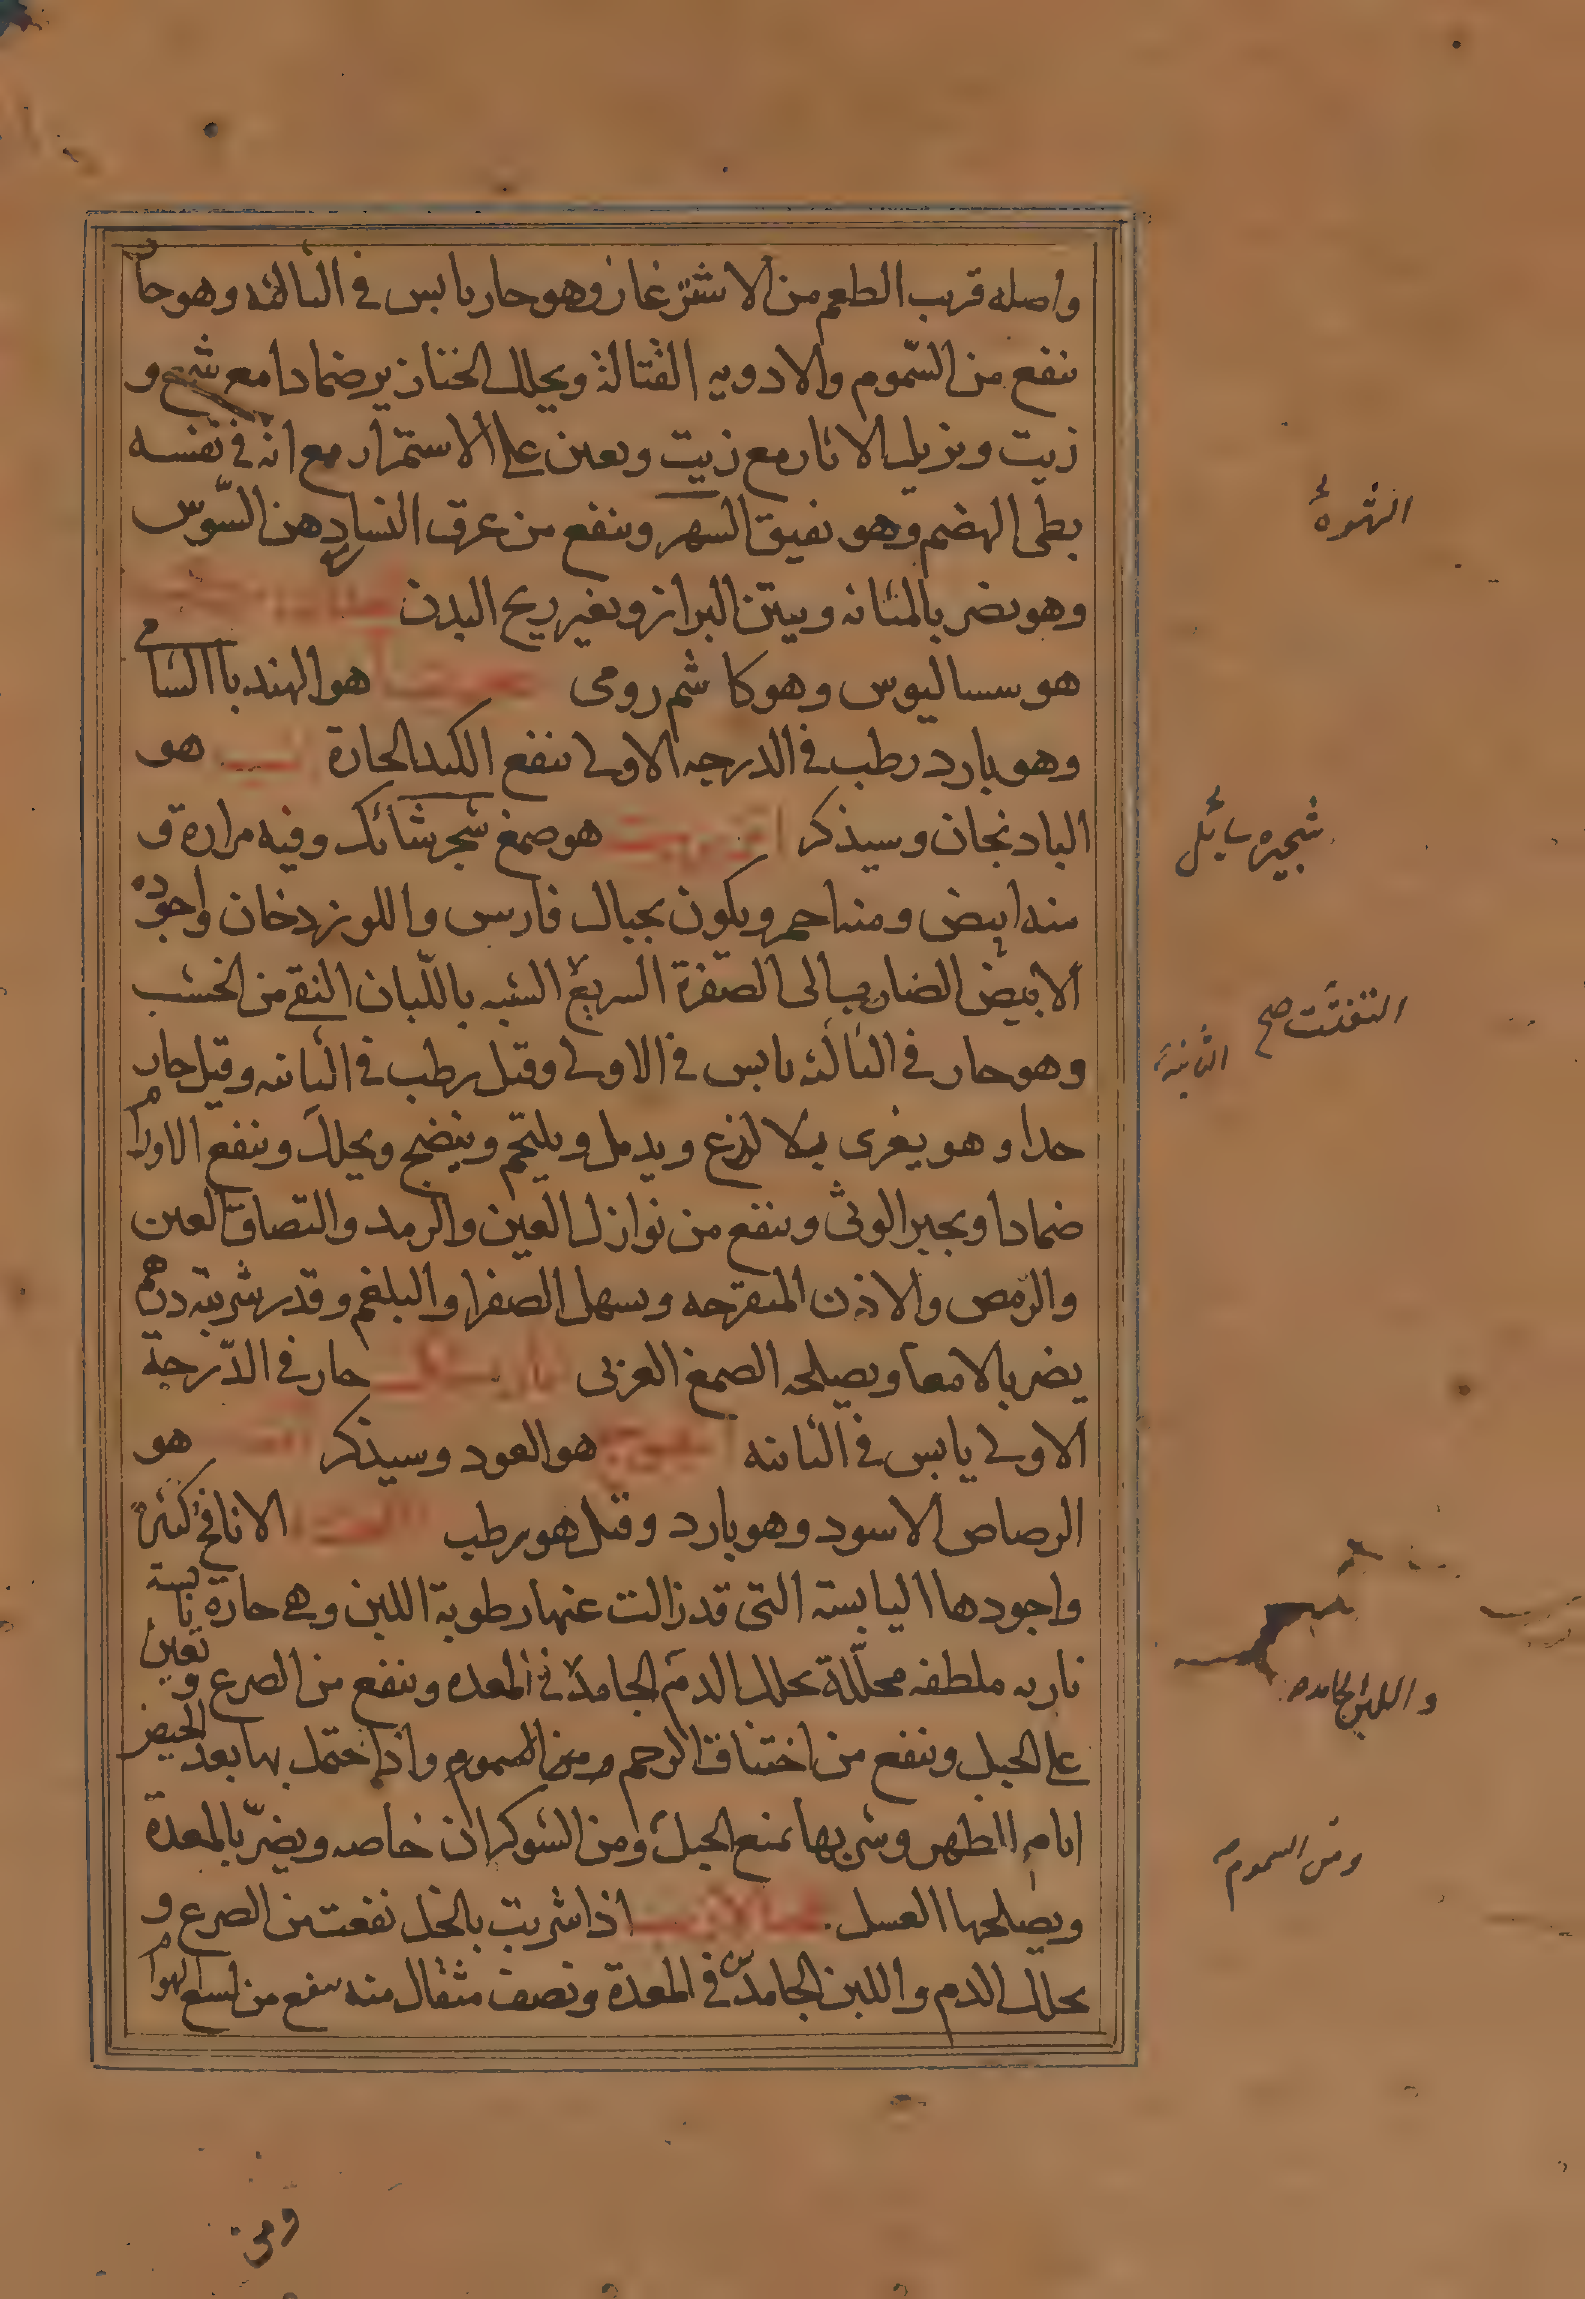 واصله قريب الطعم من الاشترغاز وهو حار يابس في الثالثه وهو حار
ينفع من السّموم والادويه القتالة ويحلل الخنازير ضمادا مع شمع و
زيت ويزيل الاثار مع زيت ويعين على الاستمرار مع انه في نفسه
بطى الهضم وهو يفيق السهر وينفع من عرق النسا دهن السّوس
وهو يضر بالمثانه وينتن البراز ويغير ريح البدن
هو سساليوس وهو كاشم رومى هو الهندبا الشامي
وهو بارد رطب في الدرجه الاولى ينفع الكبد الحارة هو
البادنجان وسيذكر هو صمغ شجر شائك وفيه مرارة و
منه ابيض ومنه احمر ويكون بجبال فارس واللوزدخان واجوده
الابيض الضارب الى الصفرة السريع الشبه باللّبان النقي من الخشب
وهو حار في الثالثه يابس في الاولى وقيل رطب في الثانيه وقيل حار
جدا وهو يغرى بلا لذع ويدمل ويلحم وينضج ويحلل وينفع الاورام
ضمادا ويجبر الوثى وينفع من نوازل العين والرمد والتصاق العين
والرّمص والاذن المتقرحه ويسهل الصفرا والبلغم وقدر شربته درهم
يضر بالامعا ويصلحه الصمغ العربى حار في الدّرجة
الاولى يابس في الثانيه هو العود وسيذكر هو
الرصاص الاسود وهو بارد وقيل هو رطب الانافح كثيرة
واجودها اليابسة التى قد زالت عنها رطوبة اللبن وهي حارة يابسة
ناريه ملطفه محلّلة تحلل الدم الجامد في المعده وينفع من الصرع وتعين
على الحبل وينفع من اختناق الرحم ومن السموم واذا احتمل بها بعد الحيض
ايام الطهر وشربها تمنع الحبل ومن الشوكران خاصه ويضرّ بالمعدة
ويصلحها العسل اذا شربت بالخل نفعت من الصرع و
تحلل الدم واللبن الجامد في المعدة ونصف مثقال منه ينفع من لسع الهوام
الشهوة
شجيره سائل
التفتت صح
الثانية
واللبن الجامده
ومن السموم
ومن